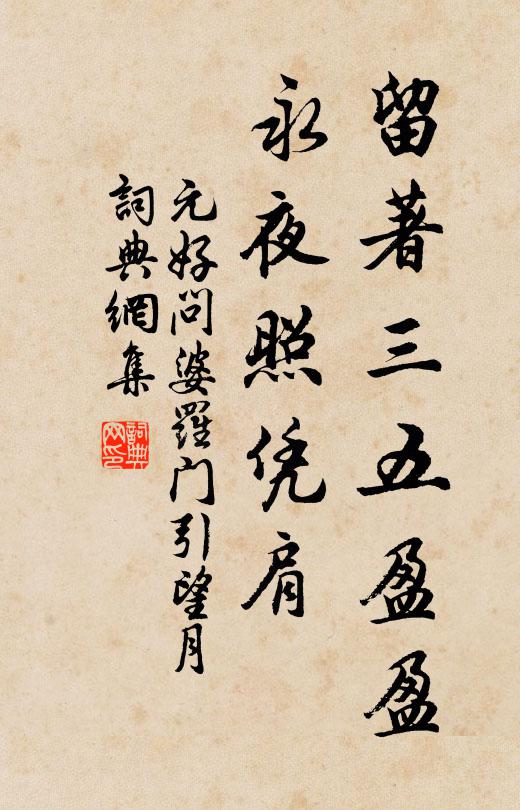 留著三五盈盈
永夜照凭肩
元好问婆羅门引望月
詞典網集
詞典網印